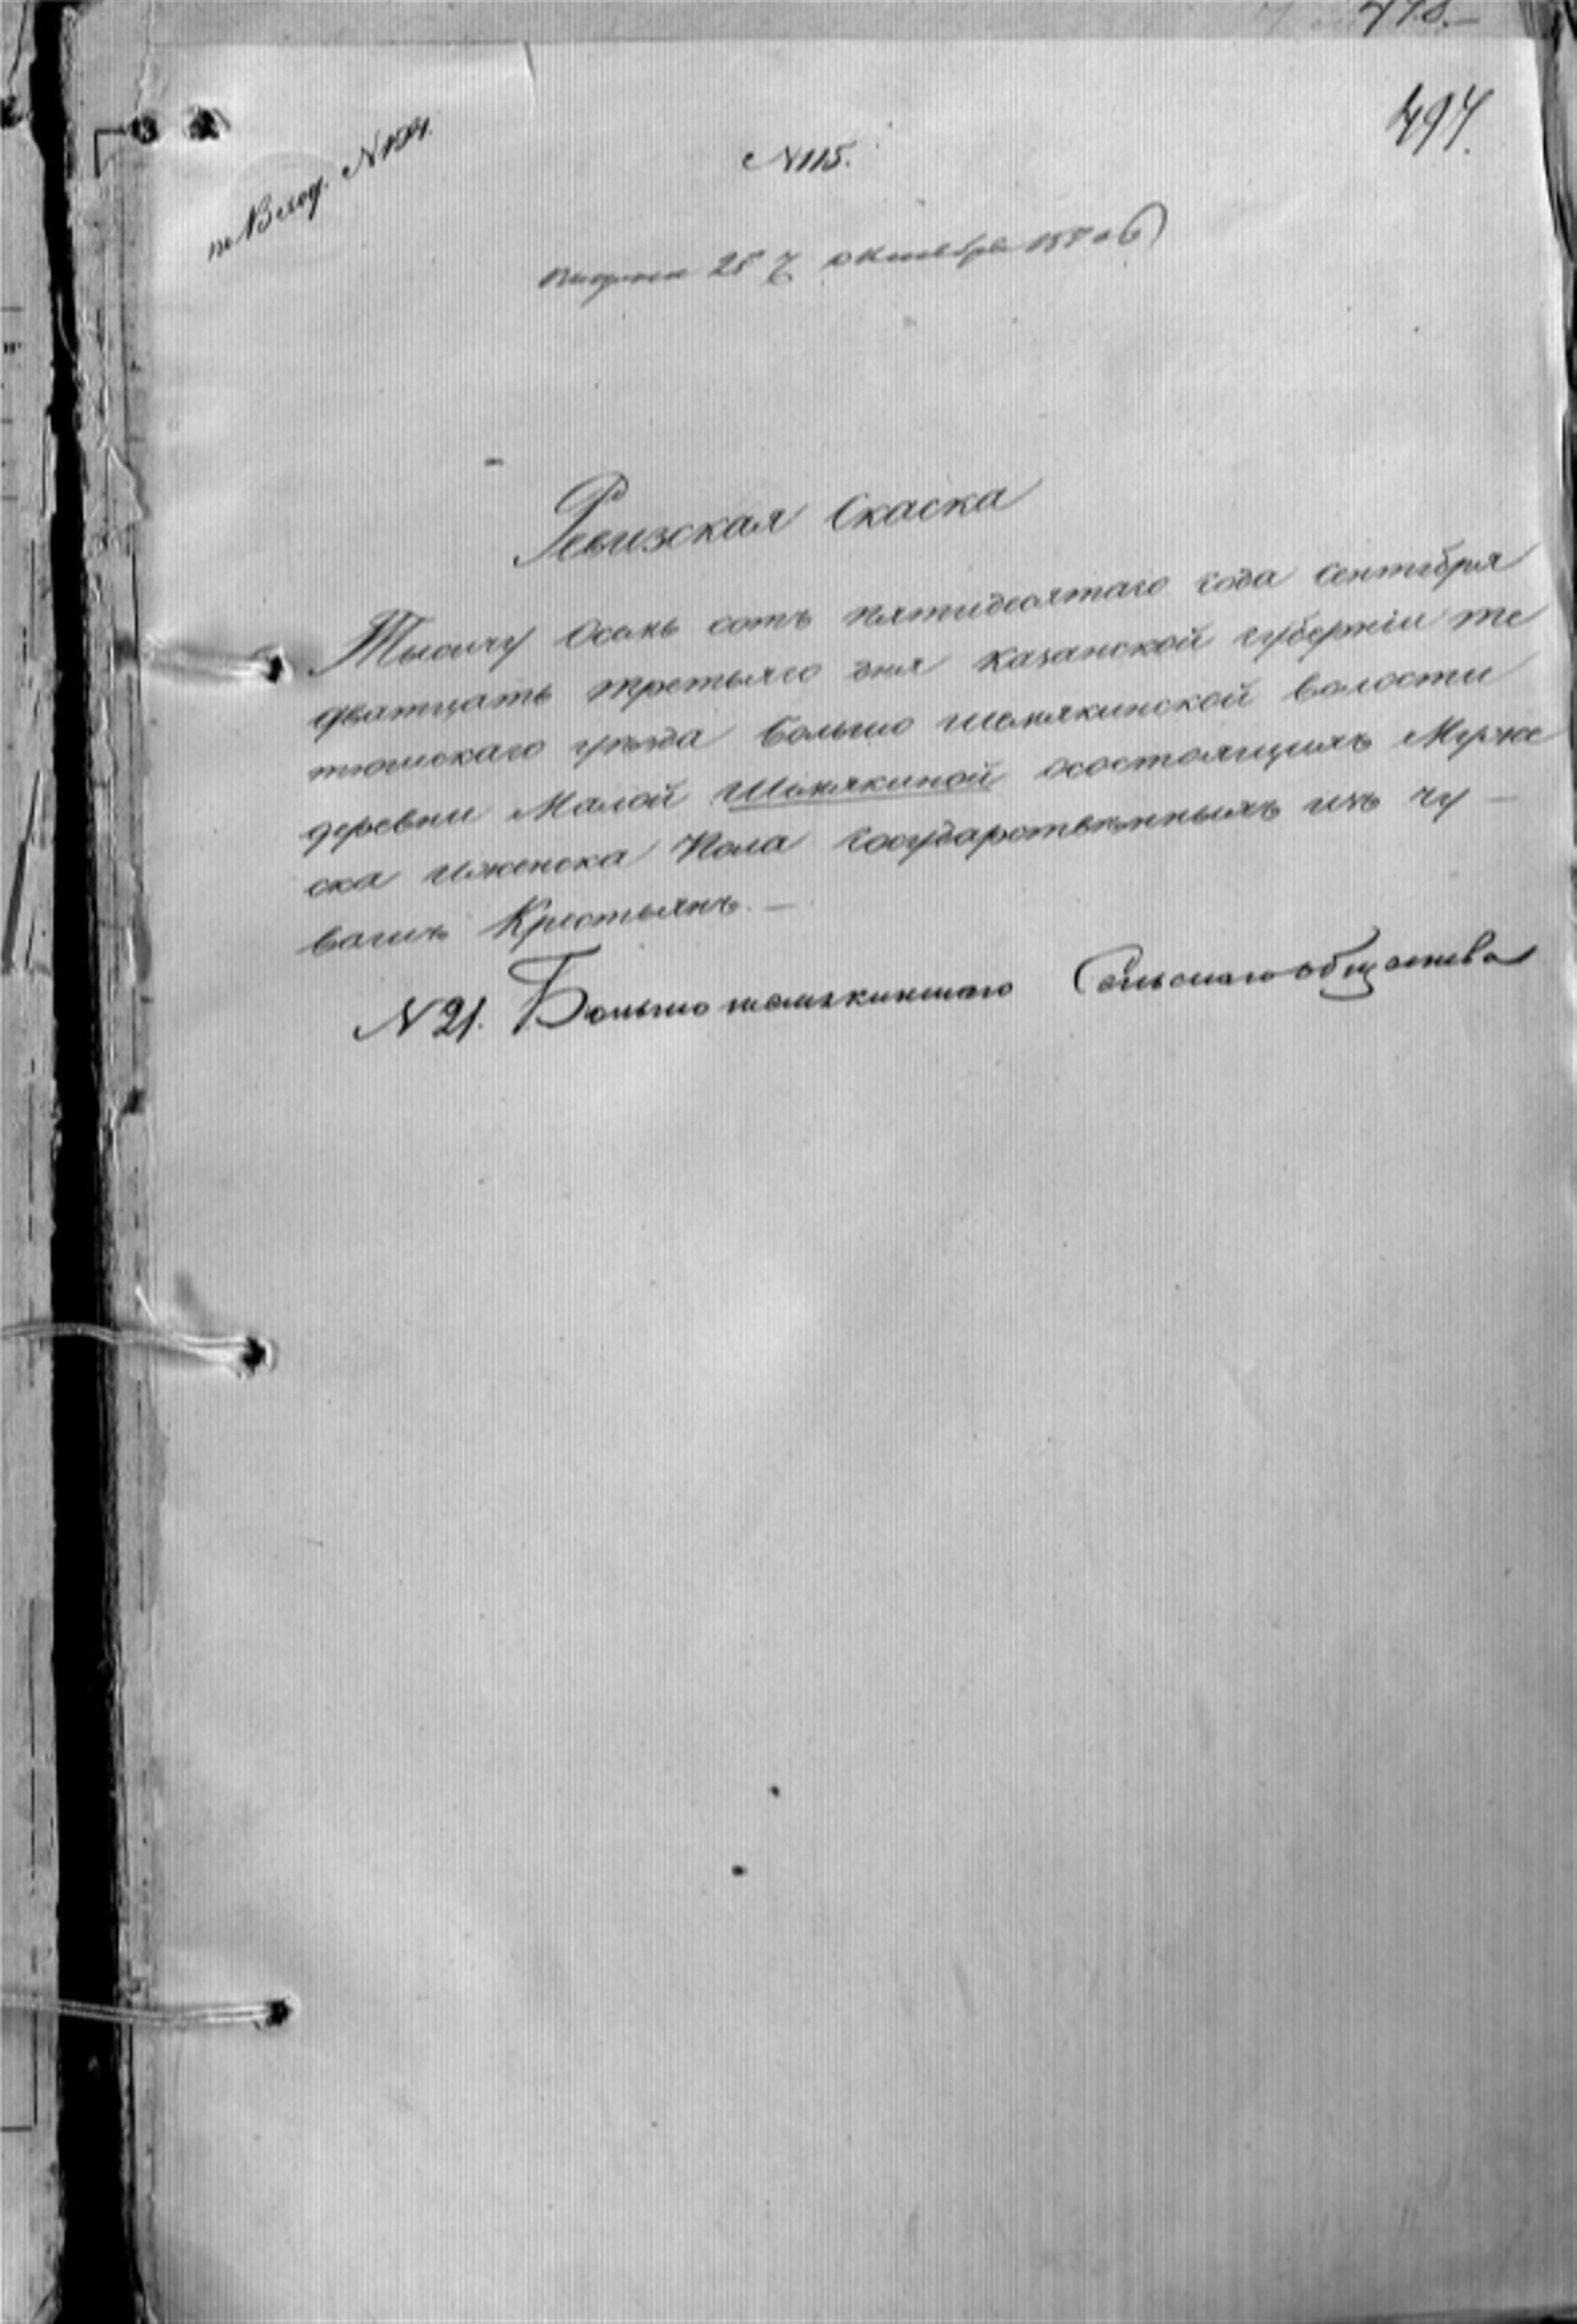 494.
по Вход. N 194.
N 115.
25 октября 1850
Ревизская Скаска
Тысячу Осемь сотъ пятидесятаго года Сентября
дватцать третьяго дня Казанской губерніи те
тюшскаго уезда Большо шемякинской волости
деревни Малой Шемякиной осостоящихъ Муже
ска иженска Пола государственныхъ изъ чу –
вашъ Крестьянъ. –
N 21. Большо шемякинскаго Сельскаго общества